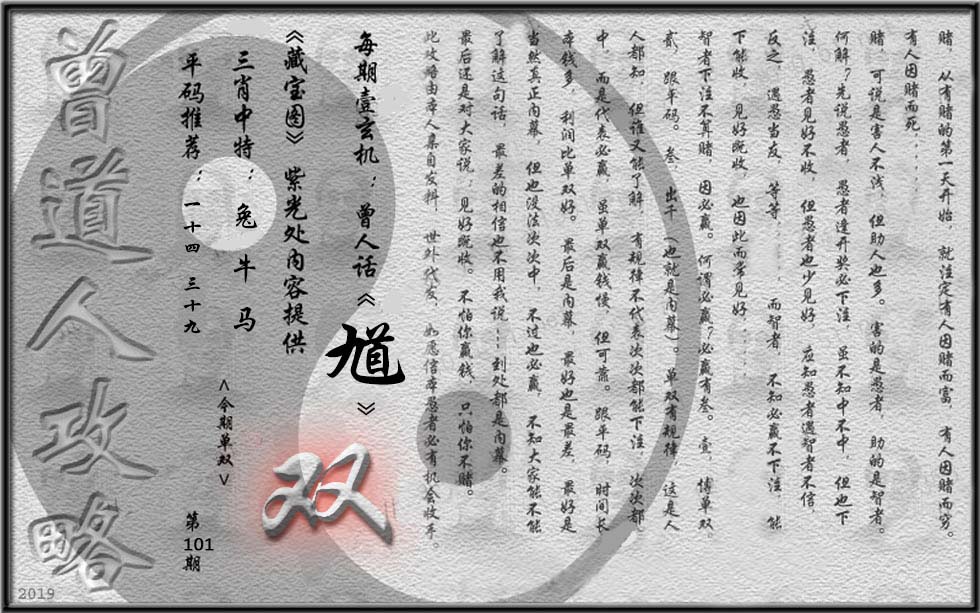 赌，从有赌的第一天开始，就注定有人因赌而富，有人因赌而穷。
有人因赌而死......
赌，可说是害人不浅，但助人也多。害的是愚者，助的是智者。
何解？先说愚者，愚者逢开奖必下注，虽不知中不中，但也下
注，愚者见好不收，但愚者也少见好，应知愚者遇智者不信，
反之，遇愁当友，等等......而智者，不知必赢不下注，能
下能收，见好既收，也因此而常见好......
智者下注不算赌，因必赢。何谓必赢？必赢有叁。壹，博单双，
贰，跟平码。叁，出千（也就是内幕）。单双有规律，这是人
人都知，但谁又能了解，有规律不代表次次都能下注，次次都
中，而是代表必赢，虽单双赢钱慢，但可靠。跟平码，时间长
本钱多，利润比单双好。最后是内幕，最好也是最差，最好是
当然真正内幕，但也没法次次中，不过也必赢，不知大家能不能
了解这句话，最差的相信也不用我说……到处都是内幕。
最后还是对大家说：见好既收。不怕你赢钱，只怕你不赌。
此攻略由本人集自发料，世外代友，如愿信本愚者必有机会收手。
每期壹玄机：曾人话《馗》
《藏宝图》紫光处内容提供
三肖中特：兔 牛 马
平码推荐：一十四 三十九
<今期单双>
双
第101期
曾道人攻略
2019